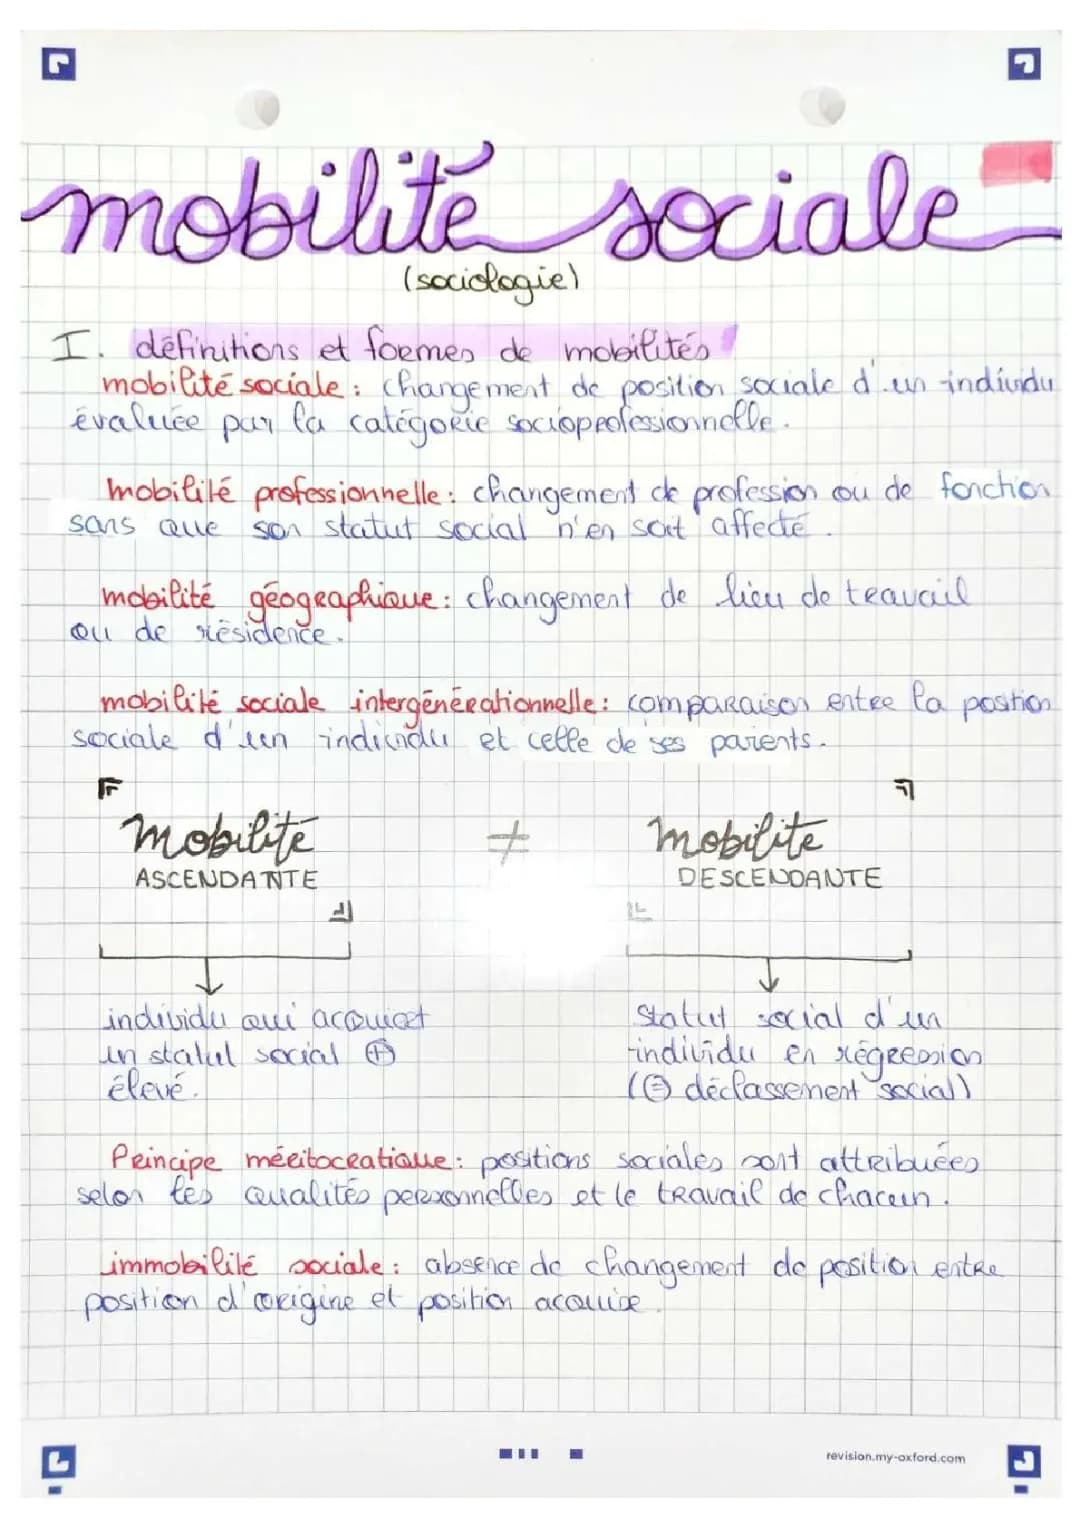 mobilité sociale
(sociologie)
I. définitions et formes de mobilités
mobilité sociale : changement de position sociale d'un individu
évaluée par la catégorie socioprofessionnelle.
mobilité professionnelle : changement de profession ou de fonction
sans que son statut social n'en soit affecté.
mobilité géographique : changement de lieu de travail
ou de résidence.
mobilité sociale intergénérationnelle : comparaison entre la position
sociale d'un individu et celle de ses parents.
Mobilité ≠ Mobilité
ASCENDANTE DESCENDANTE
individu qui acquiert
un statut social ⊕
élevé.
Statut social d'un
individu en régression
(⊜ déclassement social)
Principe méritocratique : positions sociales sont attribuées
selon les qualités personnelles et le travail de chacun.
immobilité sociale : absence de changement de position entre
position d'origine et position acquise.
revision.my-oxford.com